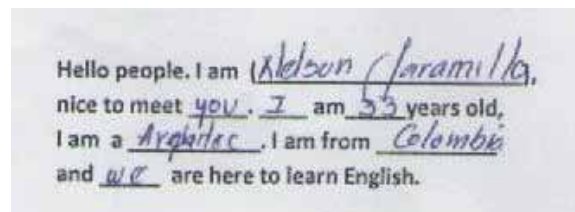 Hello people. I am (Nelson Jaramilla,
nice to meet you. I am 33 years old,
I am a Arghitec. I am from Colombia
and we are here to learn English.